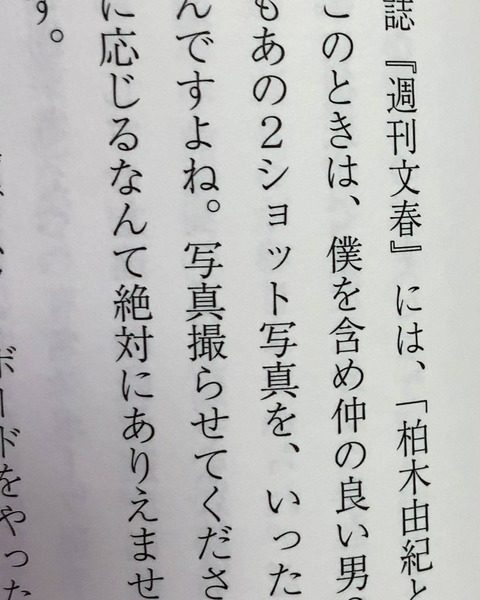 誌『週刊文春』には、「柏木由紀と
このときは、僕を含め仲の良い男
もあの2ショット写真を、いった
んですよね。写真撮らせてくださ
に応じるなんて絶対にありえませ
す。
ボードをやった